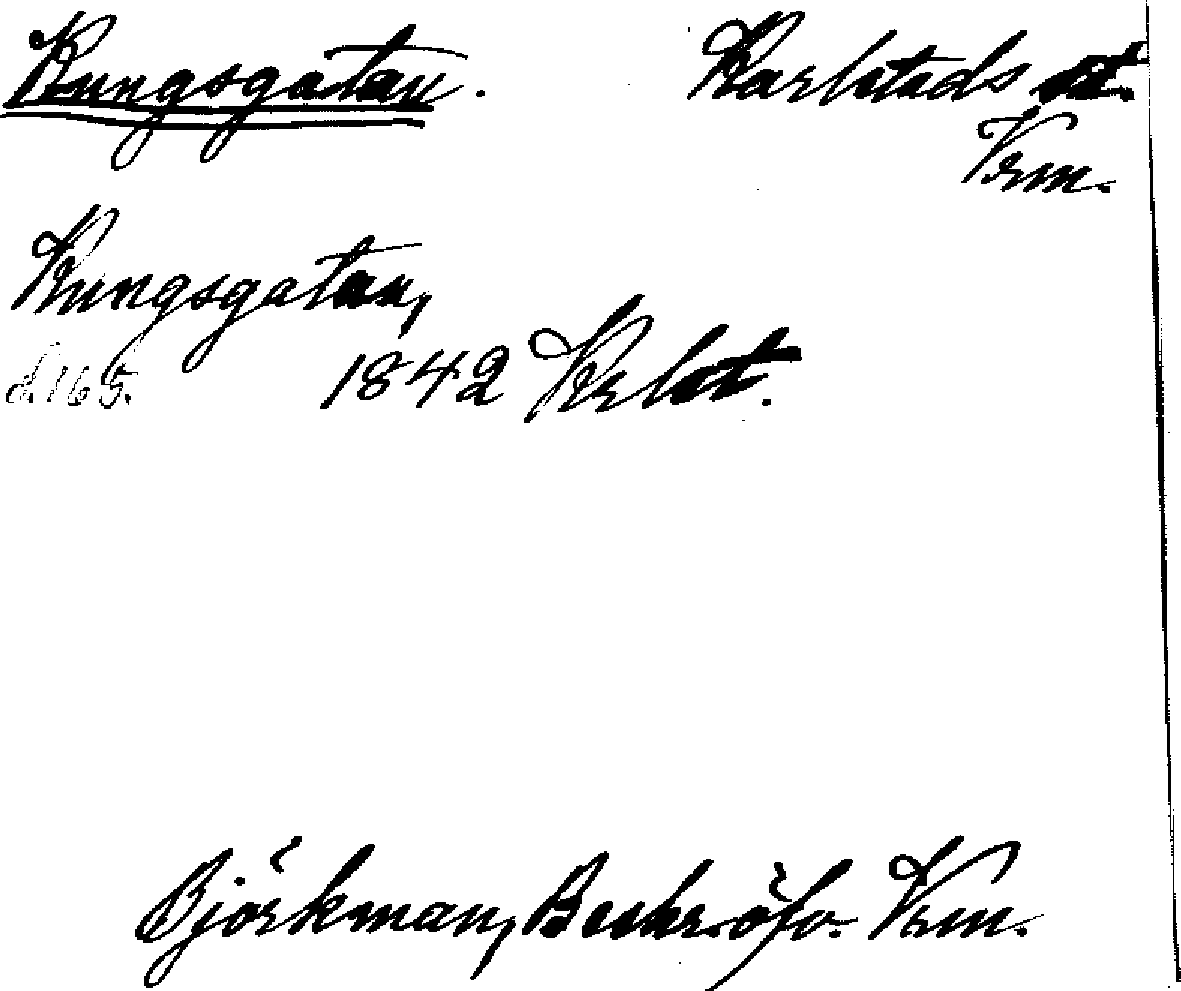 Kungsgatan. Karlstads st.
Vrm.
Kungsgatan,
d. 165. 1842 Krlst.
Björkman, Beskr. öfv. Vrm.